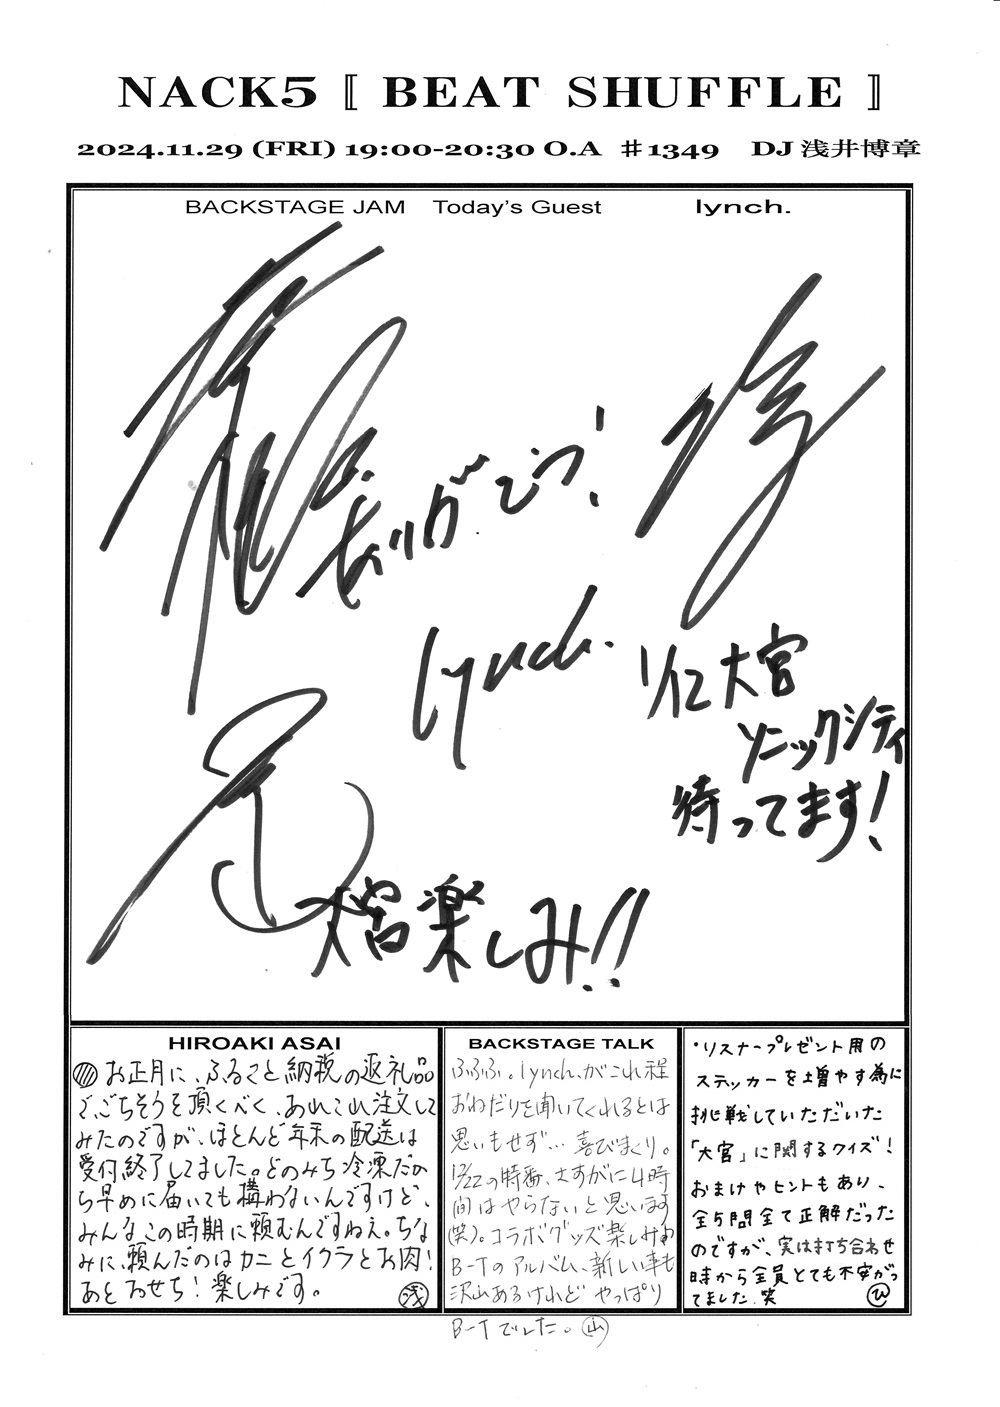 NACK5 〚 BEAT SHUFFLE 〛
2024.11.29 (FRI) 19:00-20:30 O.A ♯1349 DJ 浅井博章
BACKSTAGE JAM Today's Guest lynch.
ありがとう!
lynch.
1/12 大宮
ソニックシティ
待ってます!
大宮楽しみ!!
HIROAKI ASAI
お正月に、ふるさと納税の返礼品
で、ごちそうを頂くべく、あれこれ注文して
みたのですが、ほとんど年末の配送は
受付終了してました。どのみち冷凍だか
ら早めに届いても構わないんですけど、
みんなこの時期に頼むんですねえ。ちな
みに、頼んだのはカニとイクラとお肉!
あとおせち! 楽しみです。 浅
BACKSTAGE TALK
ふふふ。lynch.がこれ程
おねだりを聞いてくれるとは
思いもせず… 喜びまくり。
12/22の特番、さすがに4時
間はやらないと思います
(笑)。コラボグッズ楽しみね
B-Tのアルバム、新しい事も
沢山あるけれど やっぱり
B-Tでした。 山
・リスナープレゼント用の
ステッカーを増やす為に
挑戦していただいた
「大宮」に関するクイズ!
おまけやヒントもあり、
全5問全て正解だった
のですが、実は打ち合わせ
時から全員とても不安がっ
てました 笑 ひ